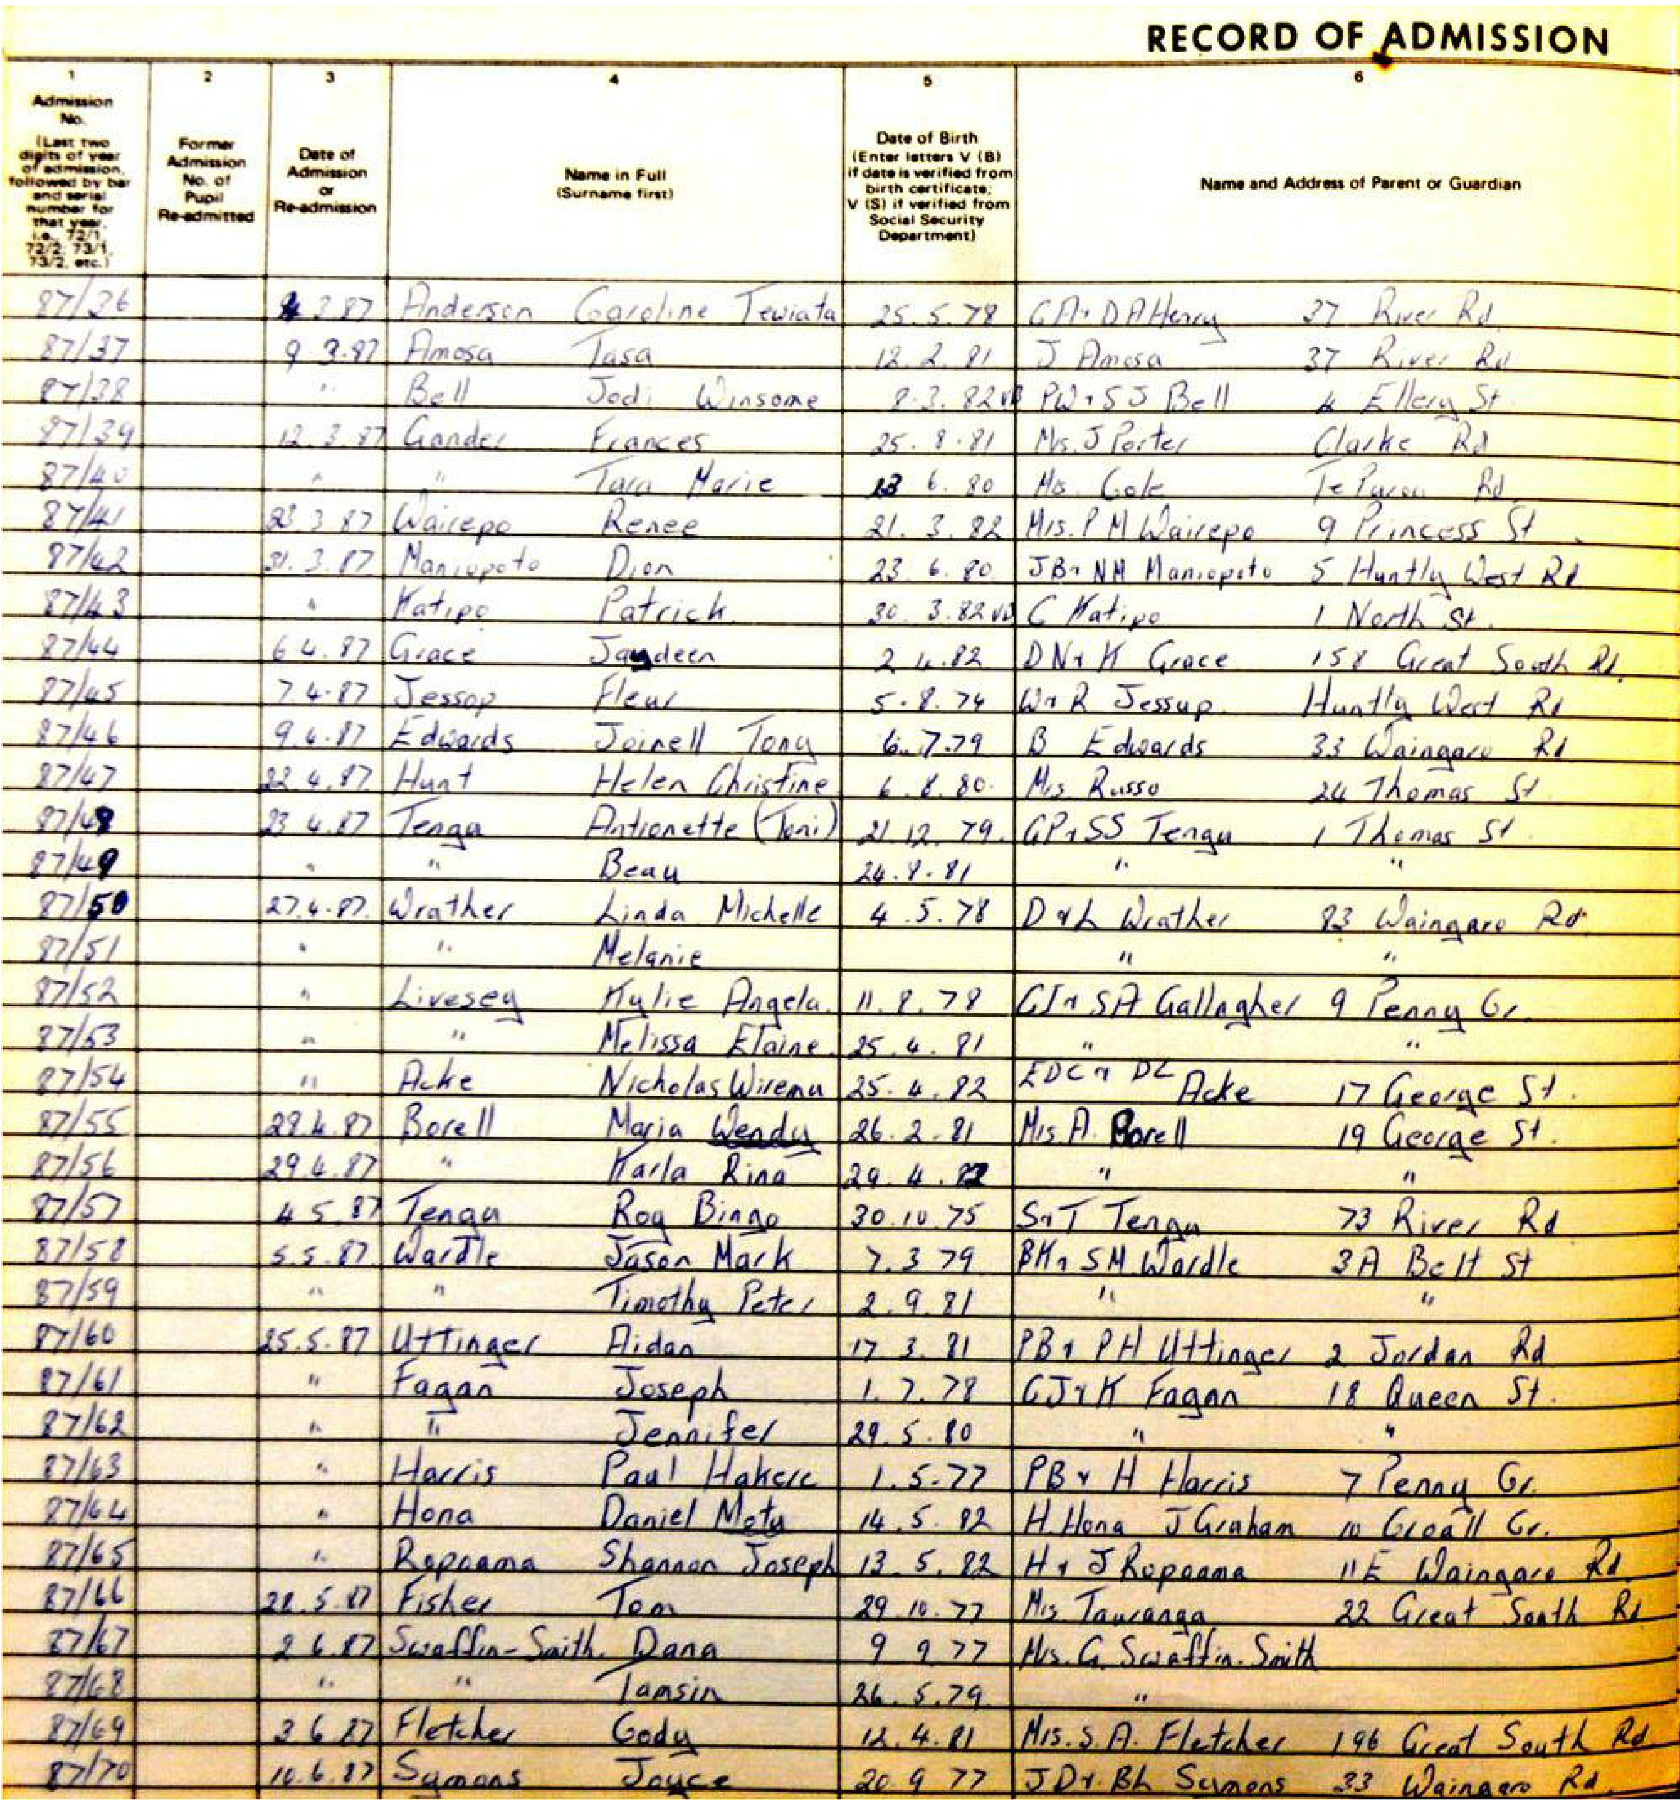 RECORD OF ADMISSION
1 2 3 4 5 6
Admission No. (Last two digits of year of admission, followed by bar and serial number for that year, i.e., 72/1, 72/2, 73/1, 73/2, etc.)
Former Admission No. of Pupil Re-admitted
Date of Admission or Re-admission
Name in Full (Surname first)
Date of Birth (Enter letters V (B) if date is verified from birth certificate; V (S) if verified from Social Security Department)
Name and Address of Parent or Guardian
87/36 4 3.87 Anderson Caroline Tewiata 25.5.78 G A & D A Henry 37 River Rd.
87/37 9 3.87 Amosa Tasa 12.2.81 J Amosa 37 River Rd
87/38 " Bell Jodi Winsome 8.3.82 VB PW & S J Bell 4 Ellery St.
87/39 12.3.87 Gander Frances 25.8.81 Mrs. J Porter Clarke Rd
87/40 " " Tara Marie 13 6.80 Mrs. Cole Te Rd.
87/41 23 3 87 Wairepo Renee 21.3.82 Mrs. P M Wairepo 9 Princess St
87/42 31.3.87 Maniopoto Dion 23 6.80 JB & NM Maniopoto 5 Huntly West Rd
87/43 " Katipo Patrick 30 3.82 VB C Katipo 1 North St.
87/44 6 4.87 Grace Jaydeen 2 4.82 D N & K Grace 158 Great South Rd.
87/45 7.4.87 Jessop Fleur 5.8.74 W & R Jessup Huntly West Rd
87/46 9.4.87 Edwards Joinell Tony 6.7.79 B Edwards 33 Waingaro Rd
87/47 22.4.87 Hunt Helen Christine 6.8.80. Mrs Russo 24 Thomas St
87/48 23 4.87 Tenga Antionette (Toni) 21.12.79. GP & SS Tengu 1 Thomas St.
87/49 " " Beau 24.8.81 " "
87/50 27.4.87. Wrather Linda Michelle 4.5.78 D & L Wrather 83 Waingaro Rd.
87/51 " " Melanie " "
87/52 " Livesey Kylie Angela. 11.8.78 GI & SA Gallagher 9 Penny Cr.
87/53 " " Melissa Elaine. 25.4.81 " "
87/54 " Acke Nicholas Wiremu 25.4.82 EDC & DL Acke 17 George St.
87/55 29.4.87 Borell Maria Wendy 26.2.81 Mrs A. Borell 19 George St.
87/56 29.4.87 " Karla Rina 29.4.82 " "
87/57 4 5.87 Tengu Roy Bingo 30.10.75 S & T Tengu 73 River Rd
87/58 5.5.87 Wardle Jason Mark 7.3 79 BK & SM Wardle 3A Bell St
87/59 " " Timothy Peter 2.9.81 " "
87/60 25.5.87 Uttinger Aidan 17.3.81 PB & PH Uttinger 2 Jordan Rd
87/61 " Fagan Joseph 1.7.78 GJ & K Fagan 18 Queen St.
87/62 " " Jennifer 29.5.80 " "
87/63 " Harris Paul Hakere 1.5.77 PB & H Harris 7 Penny Cr.
87/64 " Hona Daniel Motu 14.5.82 H. Hona J Graham 10 Cr.
87/65 " Ropoama Shannon Joseph 13.5.82 H & J Ropoama 11E Waingaro Rd.
87/66 28.5.87 Fisher Tom 29.10.77 Mrs. Tauranga 22 Great South Rd
87/67 2 6.87 Swaffin-Smith. Dana 9 9.77 Mrs. G. Swaffin-Smith
87/68 " " Tamsin 26.5.79. "
87/69 3.6.87 Fletcher Cody 12.4.81 Mrs. S.A. Fletcher 196 Great South Rd
87/70 10.6.87 Symons Joyce 20 9 77 J.D & BL Symons 33 Waingaro Rd.